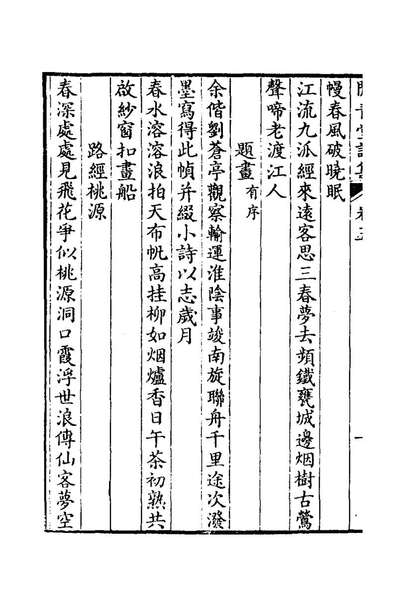 幔春風破曉眠
江流九派經來遠客思三春夢去頻鐵甕城邊烟樹古鶯
聲啼老渡江人
題畫有序
余偕劉蒼亭觀察輸運淮陰事竣南旋聯舟千里途次潑
墨寫得此幀并綴小詩以志歲月
春水溶溶浪拍天布帆高挂柳如烟爐香日午茶初熟共
啟紗窗扣畫船
路經桃源
春深處處見飛花爭似桃源洞口霞浮世浪傳仙客夢空